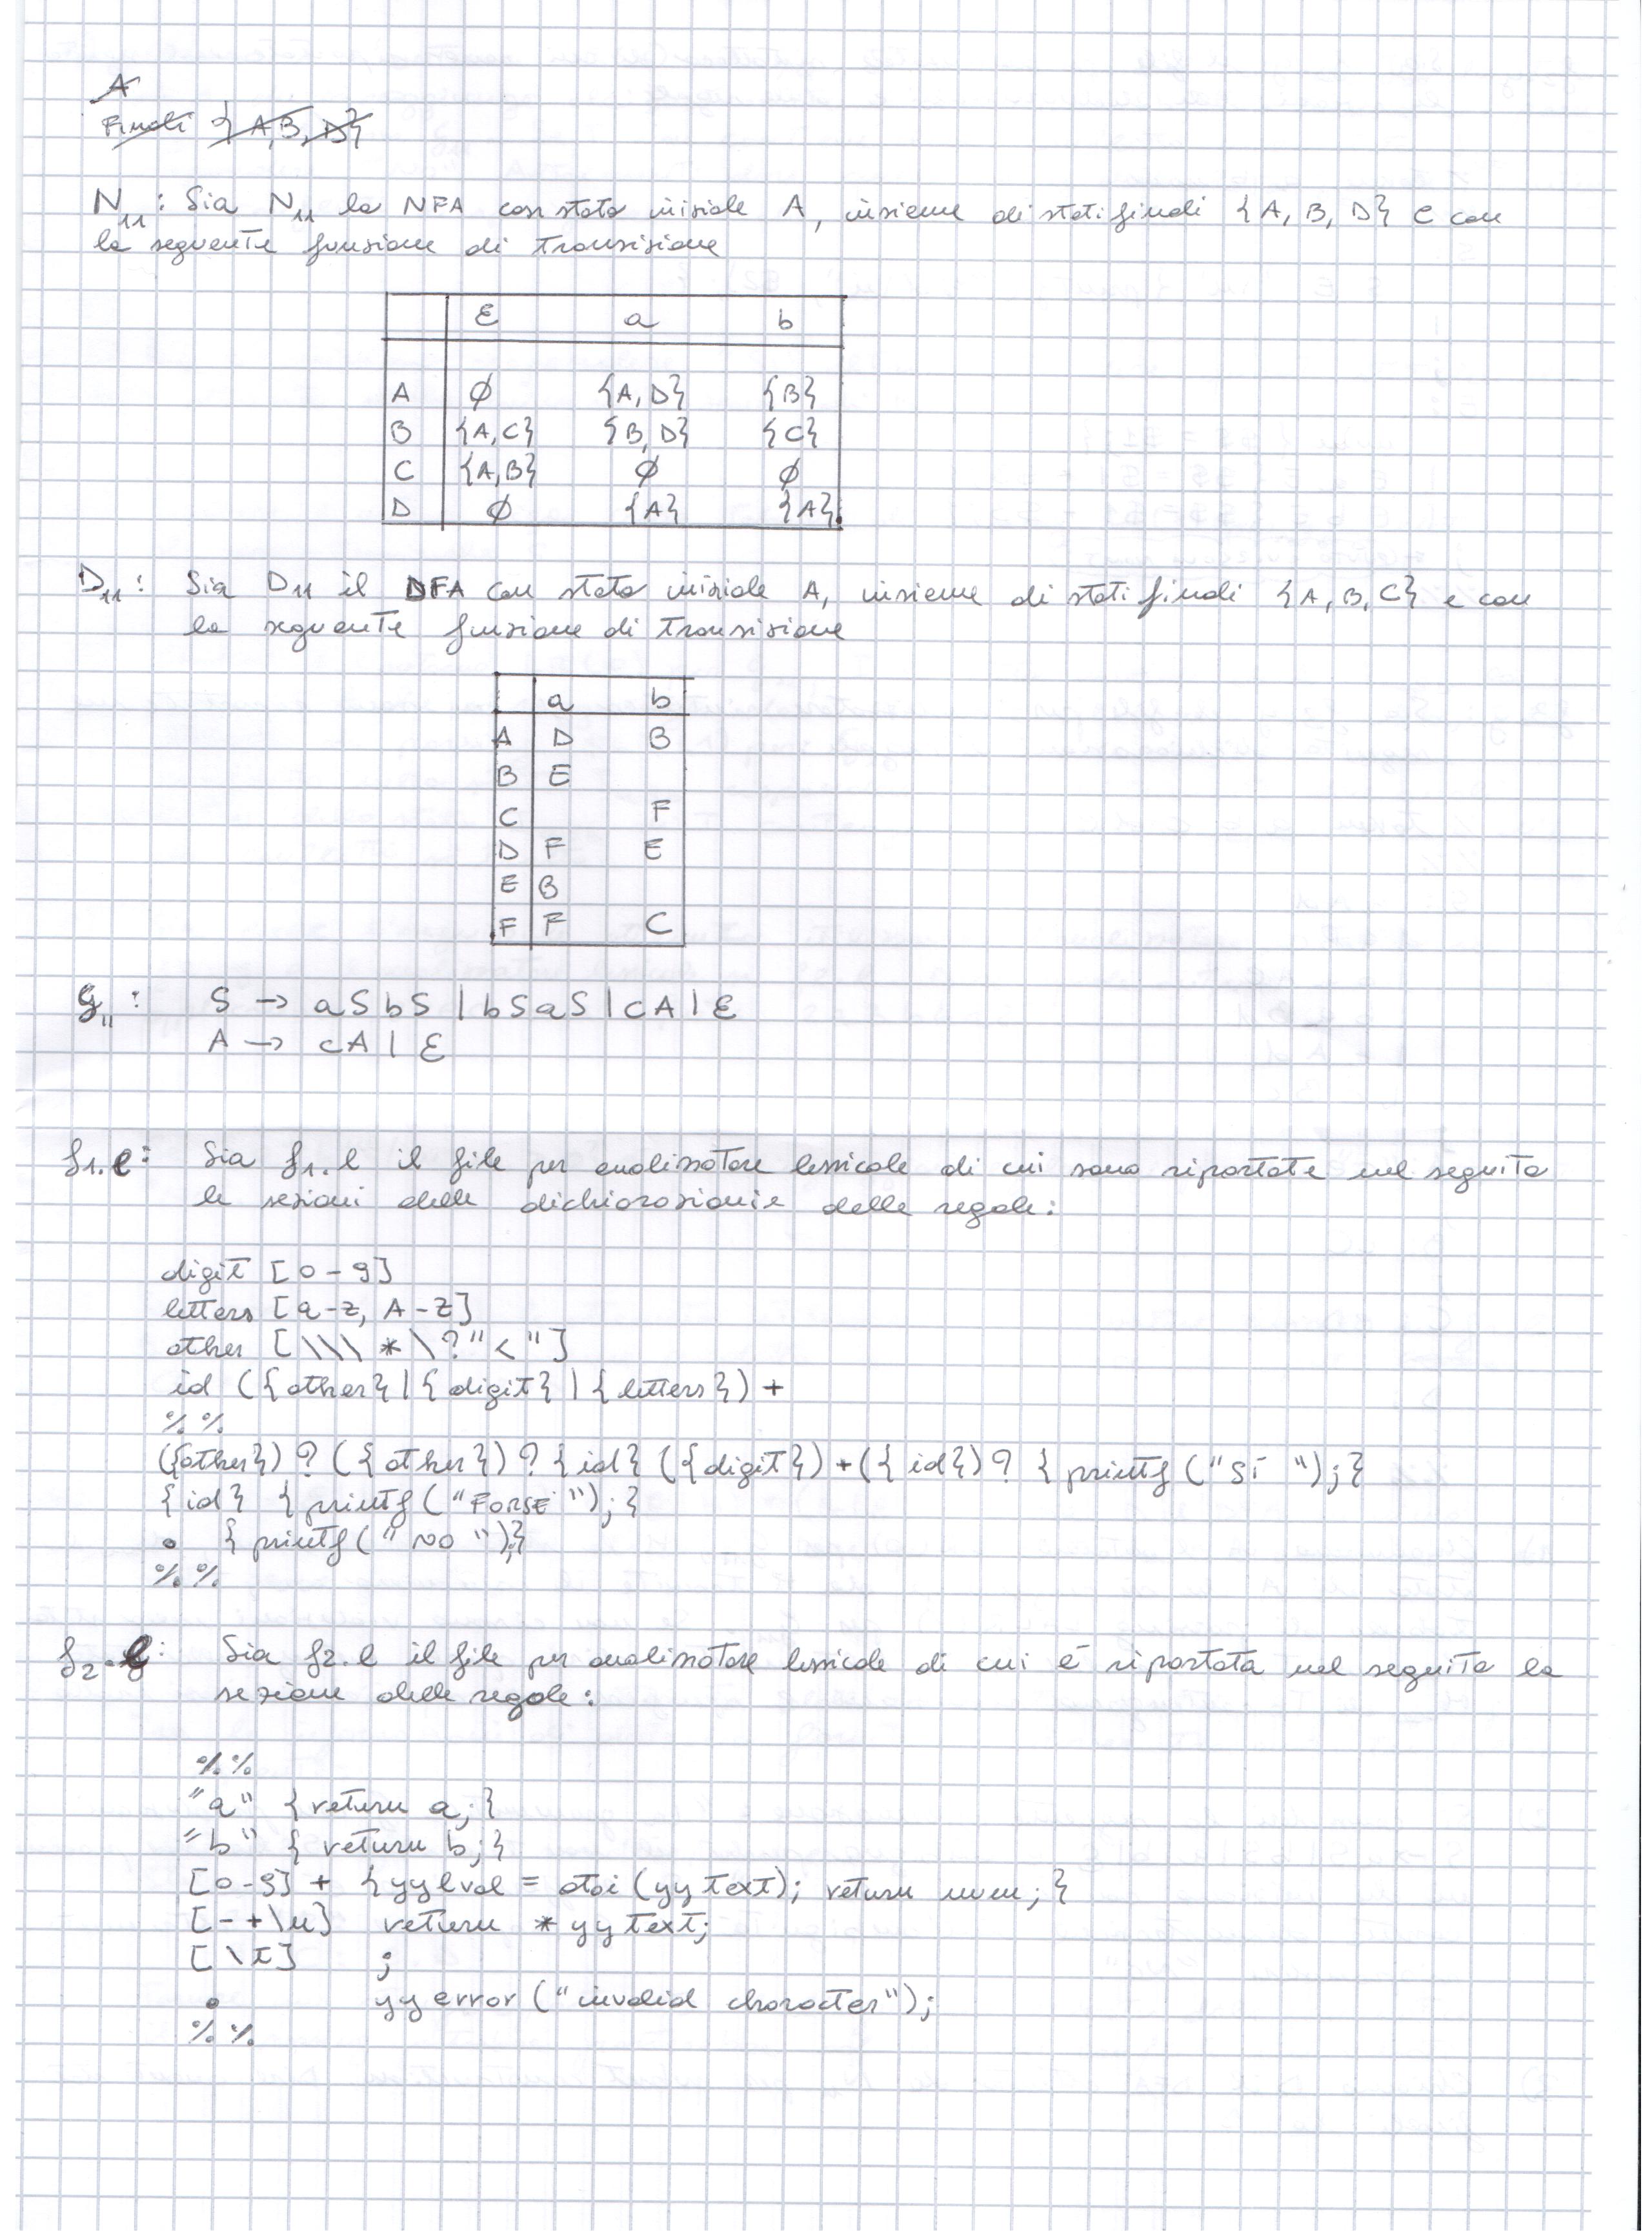 A
Finali {A,B,D}
N11: Sia N11 lo NFA con stato iniziale A, insieme di stati finali {A, B, D} e con
la seguente funzione di transizione
ε a b
A ∅ {A,D} {B}
B {A,C} {B,D} {C}
C {A,B} ∅ ∅
D ∅ {A} {A}
D11: Sia D11 il DFA con stato iniziale A, insieme di stati finali {A, B, C} e con
la seguente funzione di transizione
a b
A D B
B E
C F
D F E
E B
F F C
G11: S → aSbS | bSaS | cA | ε
A → cA | ε
f1.l: Sia f1.l il file per analizzatore lessicale di cui sono riportate nel seguito
le sezioni delle dichiarazioni e delle regole:
digit [0-9]
letters [a-z, A-Z]
other [\\\*\?"<"]
id ({other}|{digit}|{letters})+
%%
({other})?({other})?{id}({digit})+({id})? {printf("SI ");}
{id} {printf("FORSE ");}
. {printf("NO ");}
%%
f2.l: Sia f2.l il file per analizzatore lessicale di cui è riportata nel seguito la
sezione delle regole:
%%
"a" {return a;}
"b" {return b;}
[0-9]+ {yylval = atoi(yytext); return num;}
[-+\n] return *yytext;
[\t] ;
. yyerror("invalid character");
%%